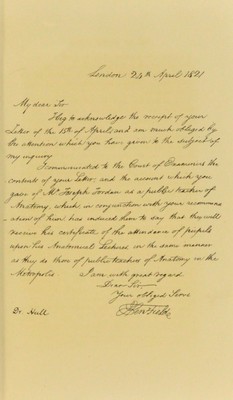 London 24th April 1821
My dear Sir
I beg to acknowledge the receipt of your
Letter of the 15th of April, and am much obliged by
the attention which you have given to the subject of
my inquiry
I communicated to the Court of Examiners the
contents of your Letter, and the account which you
gave of Mr Joseph Jordan as a public teacher of
Anatomy, which in conjunction with your recommend
ation of him has induced them to say that they will
receive his certificate of the attendance of pupils
upon his Anatomical Lectures in the same manner
as they do them of public teachers of Anatomy in the
Metropolis I am with great regard
Dear Sir
Your obliged Servt
Dr. Hull